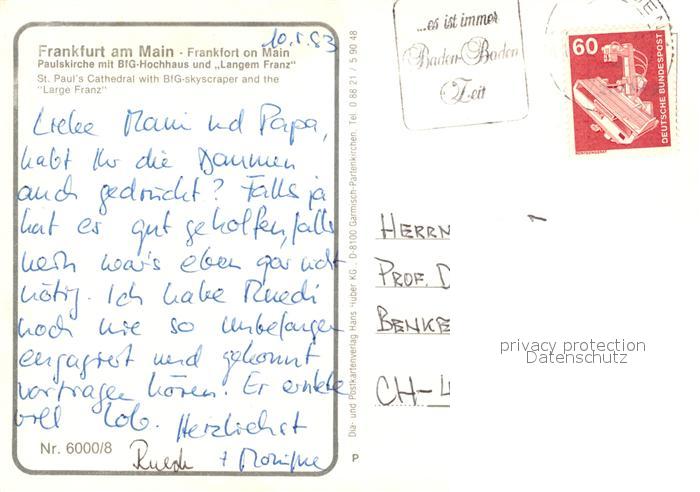 10.5.83
Frankfurt am Main - Frankfort on Main
Paulskirche mit BfG-Hochhaus und „Langem Franz"
St. Paul's Cathedral with BfG-skyscraper and the
"Large Franz"
Liebe Mami und Papa,
habt Ihr die Daumen
auch gedrückt? Falls ja
hat es gut geholfen, falls
nein war's eben gar nicht
nötig. Ich habe Ruedi
noch nie so unbefangen
engagiert und gekonnt
vortragen hören. Er erntete
viel Lob. Herzlichst
Ruedi + Monique
Nr. 6000/8
Dia- und Postkartenverlag Hans Huber KG., D-8100 Garmisch-Partenkirchen, Tel. 0 88 21 / 5 90 48
P
...es ist immer
Baden-Baden
Zeit
60
DEUTSCHE BUNDESPOST
RÖNTGENGERÄT
HERRN
PROF. D
BENKE
CH-4
privacy protection
Datenschutz